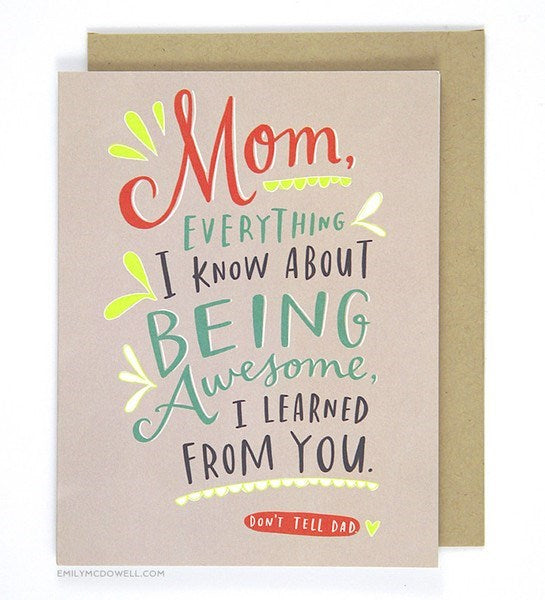 Mom,
EVERYTHING
I KNOW ABOUT
BEING
Awesome,
I LEARNED
FROM YOU.
DON'T TELL DAD
EMILYMCDOWELL.COM